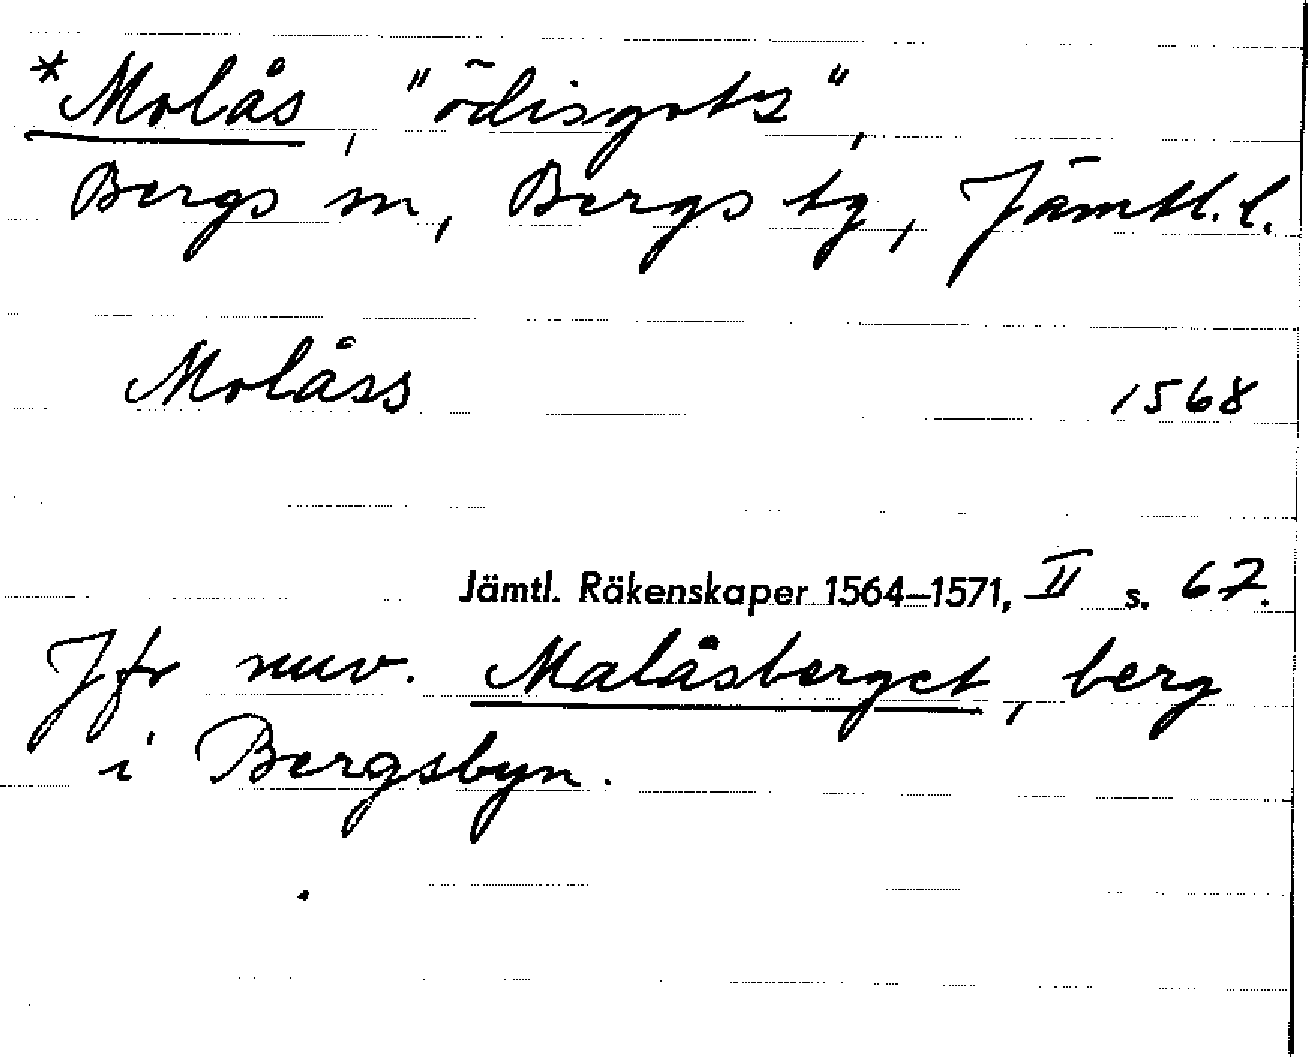 *Molås, "ödisgotz",
Bergs sn, Bergs tg, Jämtl. l.
Molåss 1568
Jämtl. Räkenskaper 1564–1571, II s. 67.
Jfr nuv. Malåsberget, berg
i Bergsbyn.